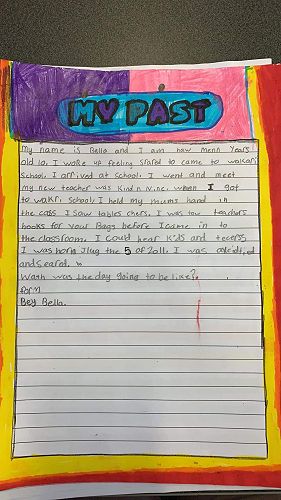 MY PAST
My name is Bella and I am how menn Years!
old 10. I woke up feeling Scared to came to wakari
School. I arrived at School. I went and meet
my new teacher was Kind n Nine. when I got
to wakri School. I held my mums hand in
the cass I Saw tables chers. I was tow teachers
hooks for your Bags before I came in to
the classroom. I could hear Kids and
I was born Jlug the 5 of 2011. I was
and Scared.
Wath was the day going to be like?
form
Bey Bella.